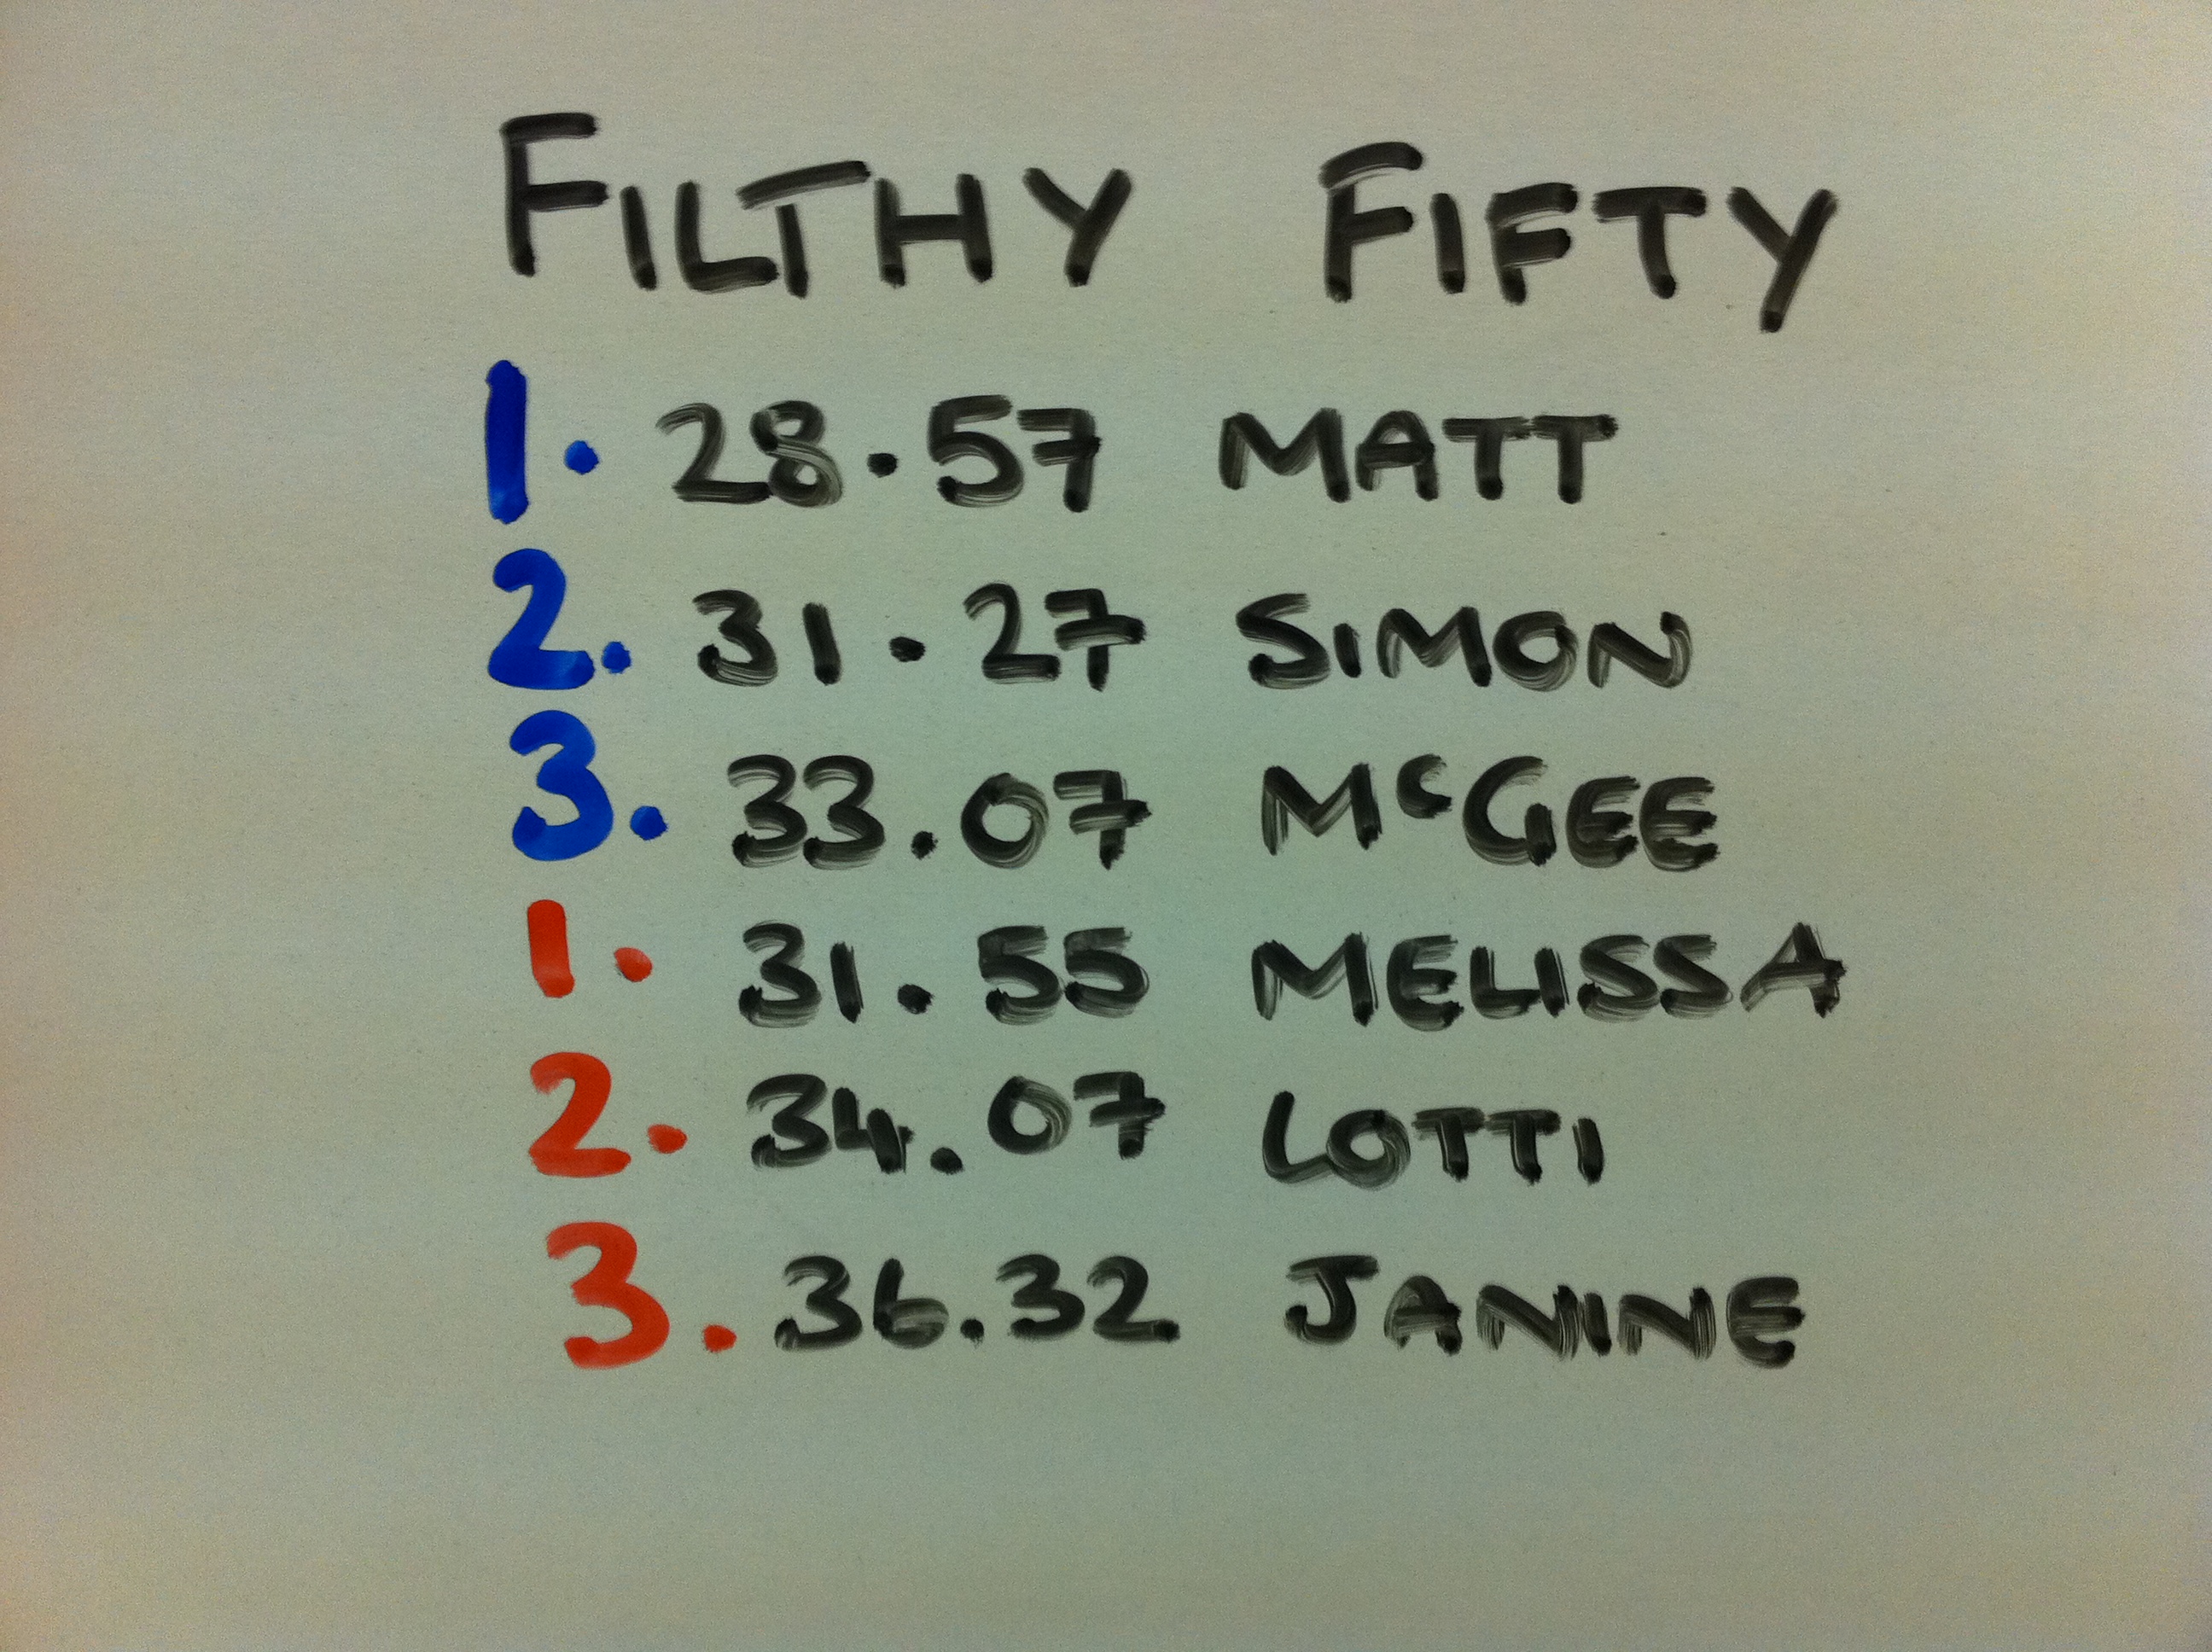 FILTHY FIFTY
1. 28.57 MATT
2. 31.27 SIMON
3. 33.07 McGEE
1. 31.55 MELISSA
2. 34.07 LOTTI
3. 36.32 JANINE